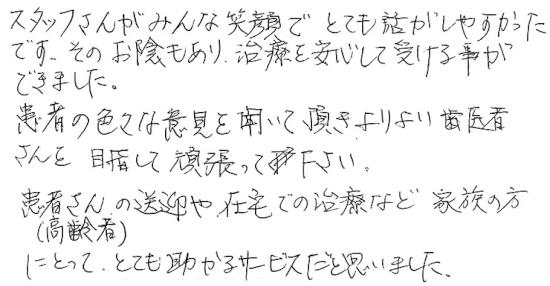 スタッフさんがみんな笑顔で とても話がしやすかった
です。そのお陰もあり、治療を安心して受ける事が
できました。
患者の色々な意見を聞いて頂きよりよい歯医者
さんを 目指して 頑張って下さい。
患者さんの送迎や、在宅での治療など 家族の方
(高齢者)
にとって、とても助かるサービスだと思いました。